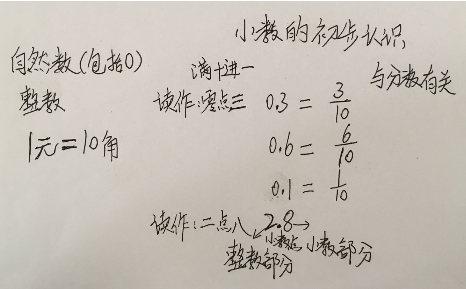 小数的初步认识
自然数(包括0)
整数
1元=10角
满十进一
与分数有关
读作:零点三 0.3 = 3/10
0.6 = 6/10
0.1 = 1/10
读作:二点八 2.8
整数部分 小数点 小数部分